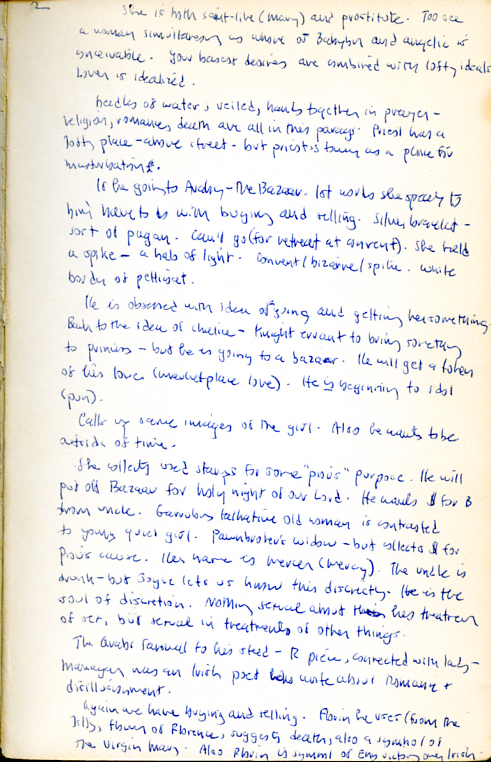 2
She is both saint-like (Mary) and prostitute. Too see
a woman simultaneously as whore of Babylon and angelic is
conceivable. Your basest desires are combined with lofty ideals
Lover is idealized.
Needles of water, veiled, hands together in prayer -
religion, romance, death are all in this parag. Priest has a
lofty place - above street - but priest's being as a place for
masturbating.
Is he going to Araby - the Bazaar. 1st words she speaks to
him have to do with buying and selling. Silver bracelet -
sort of pagan. Can't go (for retreat at convent). She held
a spike - a halo of light. Convent / bizarre / spike. White
border of petticoat.
He is obsessed with idea of going and getting her something.
Back to the idea of chalice - Knight errant to bring something
to princess - but he is going to a bazaar. He will get a token
of his love (marketplace love). He is beginning to idol
(pun).
Calls up same images of the girl. Also he wants to be
outside of time.
She collects used stamps for some "pious" purpose. He will
put off Bazaar for holy night of our Lord. He wants $ for B
from uncle. Garrulous talkative old woman is contrasted
to young quiet girl. Pawnbroker's widow - but collects $ for
pious cause. Her name is Mercer (mercy). The uncle is
drunk - but Joyce lets us know this discretely. He is the
soul of discretion. Nothing sexual about his treatment
of sex, but sexual in treatments of other things.
The Arabs Farewell to his steed - R piece, connected with lady -
Mangan was an Irish poet who wrote about Romance +
disillusionment.
Again we have buying and selling. Florin he uses (from the
lily, flower of Florence, suggests death, also a symbol of
the Virgin Mary. Also Florin is symbol of Eng victory over Irish.